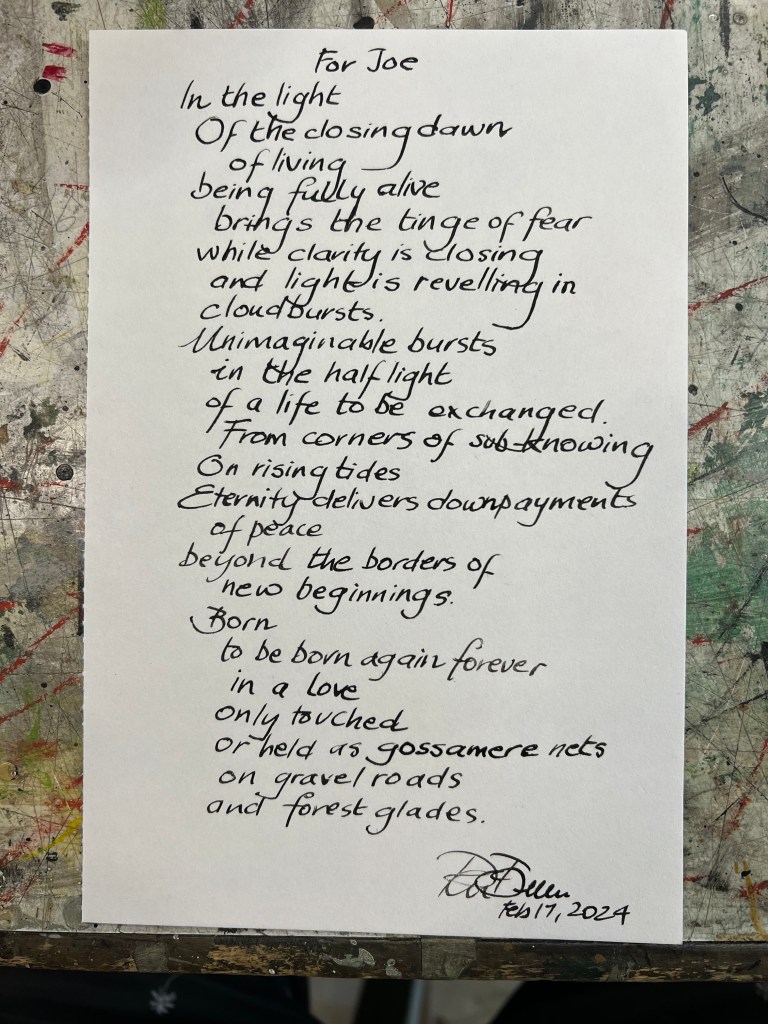 For Joe
In the light
Of the closing dawn
of living
being fully alive
brings the tinge of fear
while clarity is closing
and light is revelling in
cloudbursts.
Unimaginable bursts
in the half light
of a life to be exchanged.
From corners of sub-knowing
On rising tides
Eternity delivers downpayments
of peace
beyond the borders of
new beginnings.
Born
to be born again forever
in a love
only touched
or held as gossamere nets
on gravel roads
and forest glades.
Feb 17, 2024